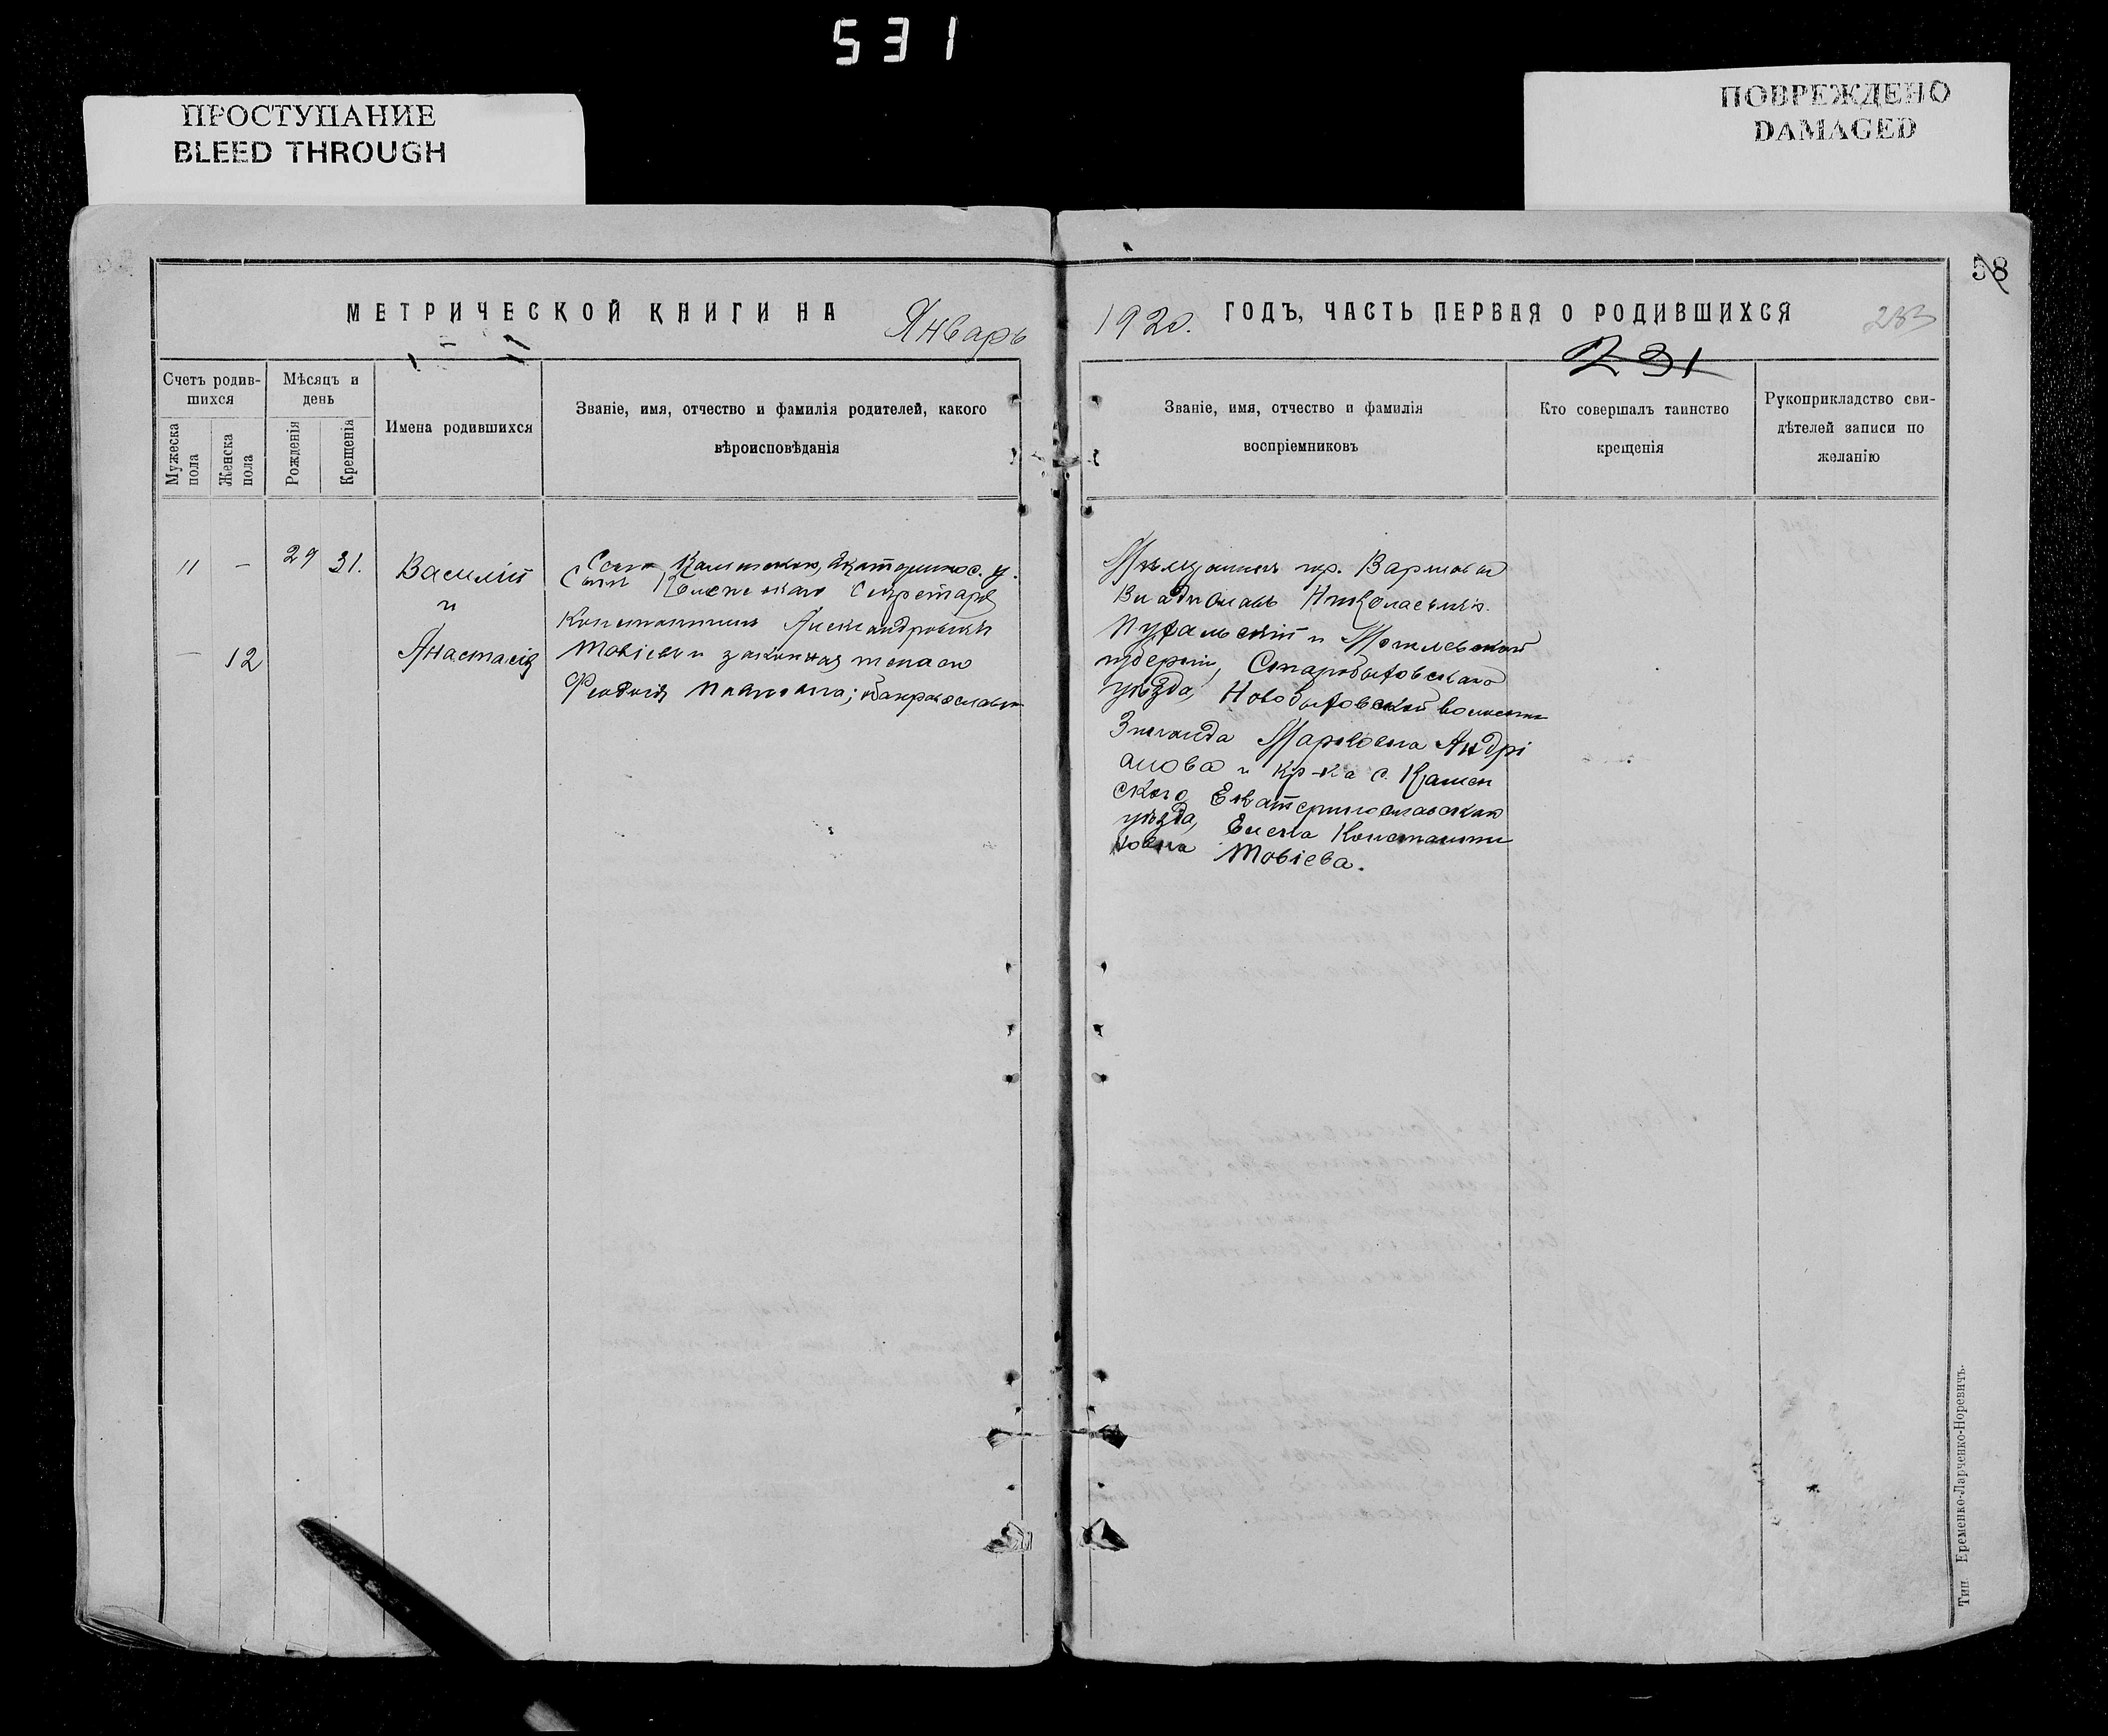 531
ПРОСТУПАНИЕ
BLEED THROUGH
ПОВРЕЖДЕНО
DAMAGED
58
МЕТРИЧЕСКОЙ КНИГИ НА Январь
1920. ГОДЪ, ЧАСТЬ ПЕРВАЯ О РОДИВШИХСЯ
231
Счетъ родив-
шихся
Мужеска
пола
Женска
пола
Мѣсяцъ и
день
Рожденія
Крещенія
Имена родившихся
Званіе, имя, отчество и фамилія родителей, какого
вѣроисповѣданія
Званіе, имя, отчество и фамилія
воспріемниковъ
Кто совершалъ таинство
крещенія
Рукоприкладство сви-
дѣтелей записи по
желанію
11 - 29 31. Василій
и
- 12 Анастасія
Села Каменскаго, Екатеринос. у.
Секретарь
Константинъ Александровичъ
Товіевъ и законная жена его
Феодосія Павловна; оба православн
Мѣщанинъ гор. Варшавы
Владиславъ Николаевичъ
и Могилевской
губерніи, Старобыховскаго
уѣзда, Новобыховской волости
Зинаида Марковна Андрі
анова и кр-ка с. Камен
скаго Екатеринославскаго
уѣзда, Елена Константи
новна Товіева.
Тип Еременко-Ларченко-Норевичъ.